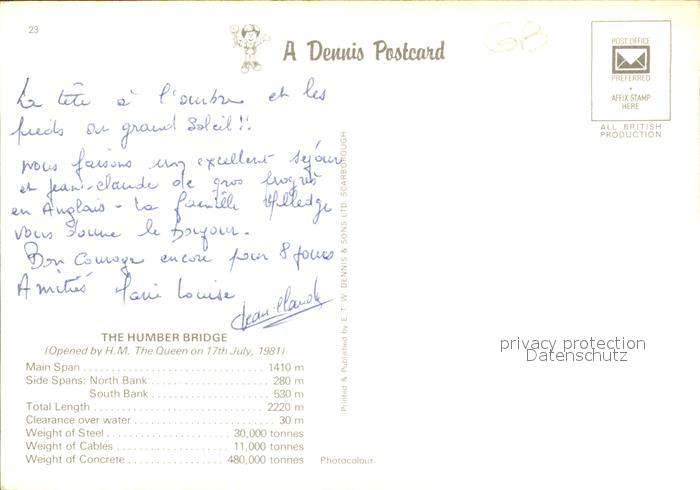 23
A Dennis Postcard
GB
POST OFFICE
PREFERRED
AFFIX STAMP
HERE
ALL BRITISH
PRODUCTION
La tête à l'ombre et les
pieds au grand Soleil!!
nous faisons un excellent séjour
et jean-claude de gros progrès
en Anglais - La famille
vous donne le bonjour.
Bon Courage encore pour 8 jours
Amitiés Marie Louise
Jean-Claude
THE HUMBER BRIDGE
(Opened by H.M. The Queen on 17th July, 1981)
Main Span . . . . . 1410 m
Side Spans: North Bank . . . . . 280 m
South Bank . . . . . 530 m
Total Length . . . . . 2220 m
Clearance over water . . . . . 30 m
Weight of Steel . . . . . 30,000 tonnes
Weight of Cables . . . . . 11,000 tonnes
Weight of Concrete . . . . . 480,000 tonnes
Photocolour
Printed & Published by E. T. W. DENNIS & SONS LTD. SCARBOROUGH
privacy protection
Datenschutz